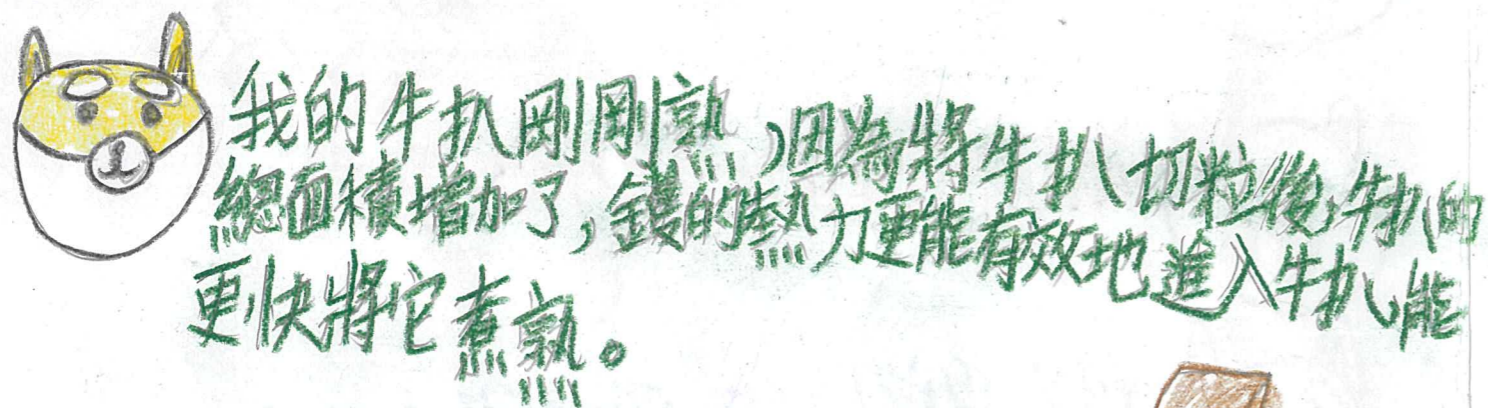 我的牛扒剛剛熟，因為將牛扒切粒後，牛扒的
總面積增加了，鑊的熱力更能有效地進入牛扒，能
更快將它煮熟。